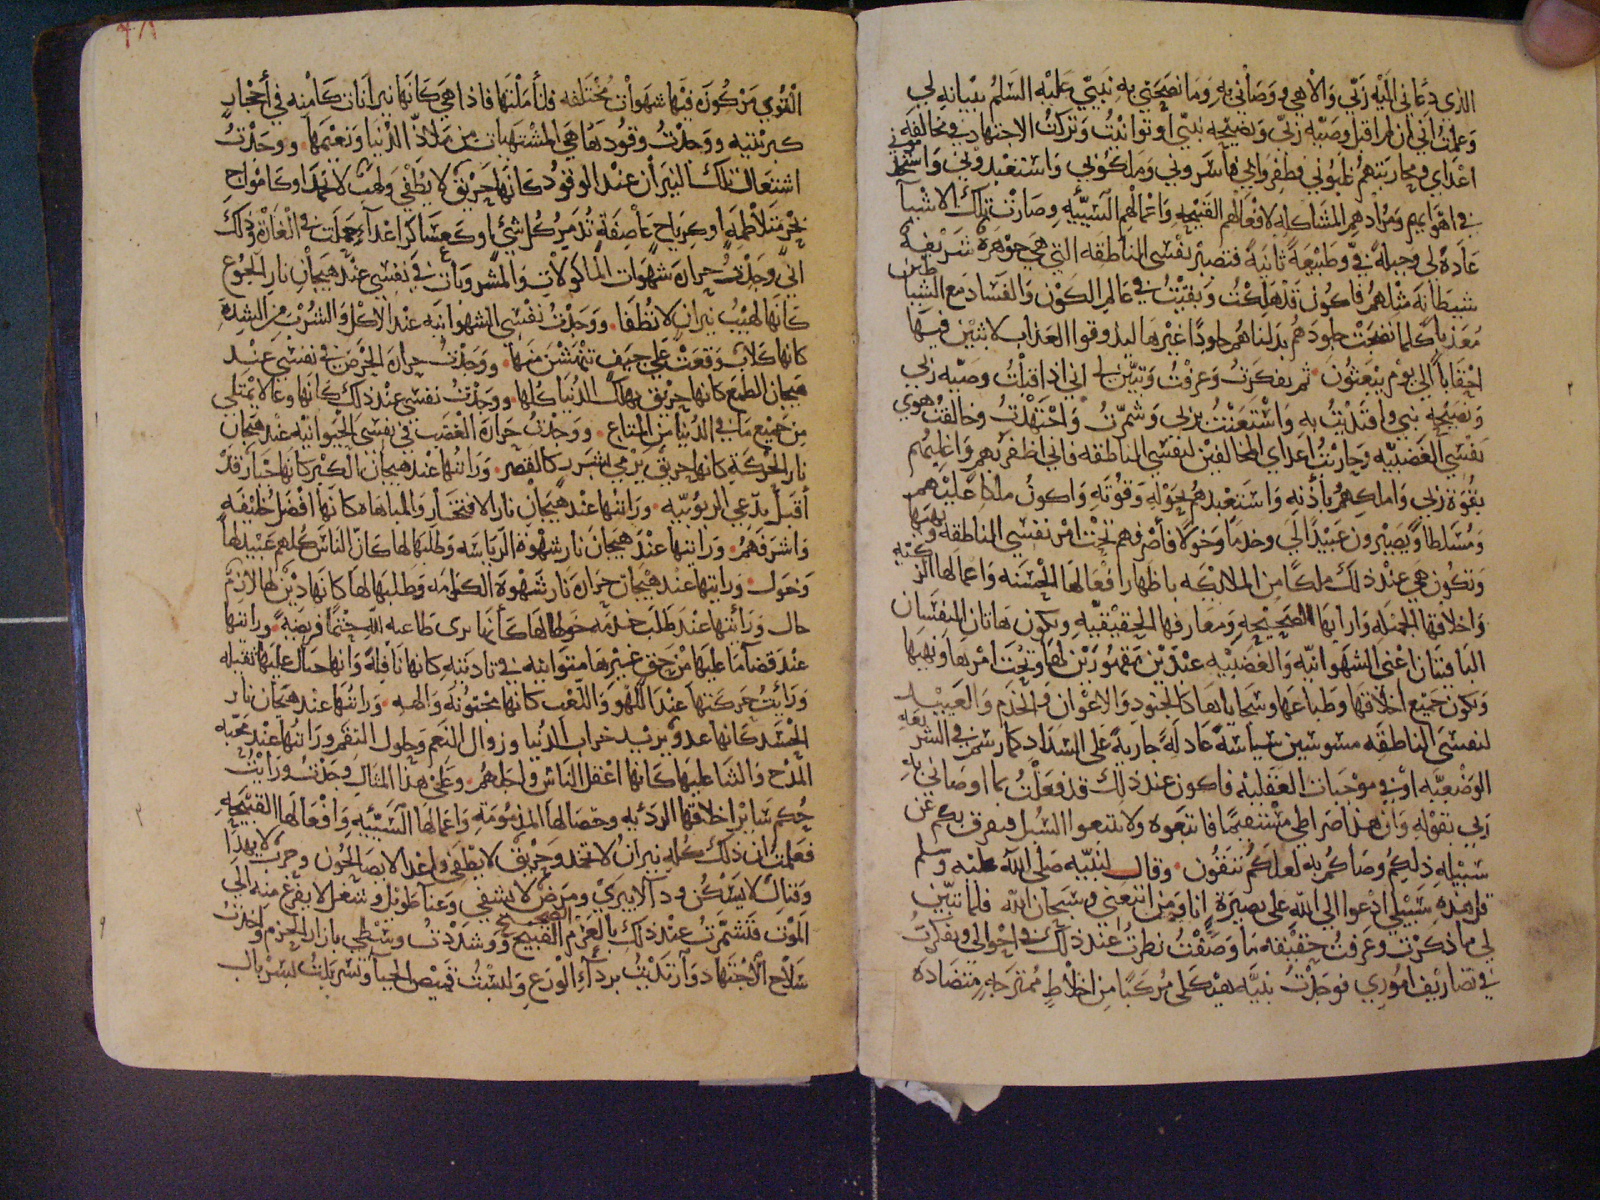 الذي دعاني اليه ربي والاهي ووصاني به وما نصحني به نبيي عليه السلم ببيانه لي
وعلمت اني ان لم اقبل وصية ربي ونصيحة نبيي او توانيت وتركت الاجتهاد في مخالفة
اعداي ومحاربتهم غلبوني وظفروا بي فاسروني وملكوني واستعبدوني واستخدموني
في اهوايهم ومرادهم المشاكلة لافعالهم القبيحة واعمالهم السيية وصارت تلك الاشيا
عادة لي وجبلة في وطبيعة ثانية فتصير نفسي الناطقة التي هي جوهرة شريفة
شيطانة مثلهم فاكون قد هلكت وبقيت في عالم الكون والفساد مع الشياطين
معذبا كلما نضجت جلودهم بدلناهم جلودا غيرها ليذوقوا العذاب لابثين فيها
احقابا الي يوم يبعثون ثم تفكرت وعرفت وتبين لي اني اذا قبلت وصية ربي
ونصيحة نبيي واقتديت به واستعنت بربي وشمرت واجتهدت وخالفت هوي
نفسي الغضبية وحاربت اعداي المخالفين لنفسي الناطقة فاني اظفر بهم واغلبهم
بقوة ربي واملكهم باذنه واستعبدهم بحوله وقوته واكون ملكا عليهم
ومسلطا ويصيرون عبيدا لي وخدما وخولا فاصرفهم تحت امر نفسي الناطقة ونهيها
وتكون هي عند ذلك ملكا من الملايكة باظهار افعالها الحسنة واعمالها الزكية
واخلاقها الجميلة وارايها الصحيحة ومعارفها الحقيقية وتكون هاتان النفسان
الباقيتان اعني الشهوانية والغضبية عبدين مقهورين لها وتحت امرها ونهيها
وتكون جميع اخلاقها وطباعها وسجاياها كالجنود والاعوان والخدم والعبيد
لنفسي الناطقة مسوسين سياسة عادلة جارية على السداد كما رسم في الشريعة
الوضعية او في موجبات العقلية فاكون عند ذلك قد فعلت بما اوصاني به
ربي بقوله وان هذا صراطي مستقيما فاتبعوه ولا تتبعوا السبل فتفرق بكم عن
سبيله ذلكم وصاكم به لعلكم تتقون وقال لنبيه صلى الله عليه وسلم
قل هذه سبيلي ادعوا الي الله على بصيرة انا ومن اتبعني وسبحان الله فلما تبين
لي ما ذكرت وعرفت حقيقة ما وصفت نظرت عند ذلك في احوالي وتفكرت
في تصاريف اموري فوجدت بنية هيكلي مركبا من اخلاط ممتزجة متضادة
القوي مركوزة فيها شهوات مختلفة فتأملتها فاذا هي كانها نيرانات كامنة في أحجار
كبريتية ووجدت وقودها هي المشتهيات من ملاذ الدنيا ونعيمها ووجدت
اشتعال تلك النيرأن عند الوقود كأنها حريق لا يطفي ولهب لا تخمد او كامواج
بحر متلاطمة او كرياح عاصفة تدمر كل شئ او كعساكر اعدآء حملت في الغارة وذلك
اني وجدت حرارة شهوات الماكولات والمشروبات في نفسي عند هيجان نار الجوع
كانها لهيب نيران لا تطفا ووجدت نفسي الشهوانية عند الأكل والشرب من الشره
كانها كلاب وقعت علي جيف تنهش منها ووجدت حرارة الحرص في نفسي عند
هيجان الطمع كانها حريق يهلك الدنيا كلها ووجدت نفسي عند ذلك كانها وعا لا يمتلي
من جميع ما في الدنيا من المتاع ووجدت حرارة الغضب في نفسي الحيوانية عند هيجان
نار الحركة كانها حريق يرمي بشرر كالقصر ورايتها عند هيجان الكبر كانها جبار قد
أقبل يدعي الربوبية ورايتها عند هيجان نار الافتخار والمباهاة كانها افضل خليقة
واشرفهم ورايتها عند هيجان نار شهوة الرياسة وطلبها لها كان الناس كلهم عبيد لها
وخول ورايتها عند هيجان حرارة نار شهوة الكرامة وطلبها لها كانها دين لها لازم
حال ورأيتها عند طلب خدمة خولها لها كأنها تري طاعة الله حتما فريضة ورايتها
عند قضآ ما عليها من حق غيرها متوانية في تاديته كانها نافلة وانها حبال عليها ثقيله
ورأيت حركتها عند اللهو واللعب كانها مجنونة والهة ورايتها عند هيجان نار
الحسد كانها عدو يريد خراب الدنيا وزوال النعم وحلول النقم ورايتها عند محبة
المدح والثنا عليها كانها اعقل الناس واجلهم وعلي هذا المثال وجدت ورايت
حكم ساير اخلاقها الرديه وخصالها المذمومة واعمالها السيئة وافعالها القبيحة
فعلمت ان ذلك كله نيران لا تخمد وحريق لا يطفي واعدا لا يصالحون وحرب لا يهدا
وقتال لا يسكن ودآ لا يبري ومرض لا يشفي وعنا طويل وشغل لا يفرغ منه الي
الموت فتشمرت عند ذلك بالعزم الصحيح وشددت وسطي بازار الحزم واخذت
سلاح الاجتهاد وارتديت بردآء الورع ولبست قميص الحيآ وتسربلت بسربال